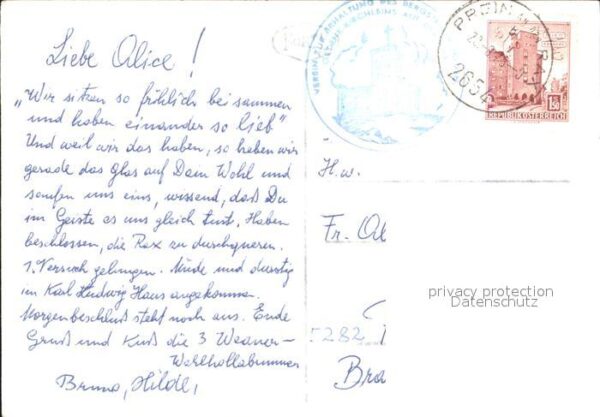 Liebe Alice!
"Wir sitzen so fröhlich beisammen
und haben einander so lieb"
Und weil wir das haben, so heben wir
gerade das Glas auf Dein Wohl und
saufen uns eins, wissend, daß Du
im Geiste es uns gleich tust. Haben
beschlossen, die Rax zu durchqueren.
1. Versuch gelungen. Müde und durstig
im Karl Ludwig Haus angekommen.
Morgenbeschluß steht noch aus. Ende
Gruß und Kuß die 3 Weaner-
Walhollabrunner
Bruno, Hilde,
VEREIN ZUR ERHALTUNG DES BERG
2654
150
REPUBLIK ÖSTERREICH
H.w.
Fr. Al
privacy protection
Datenschutz
5282
Bra